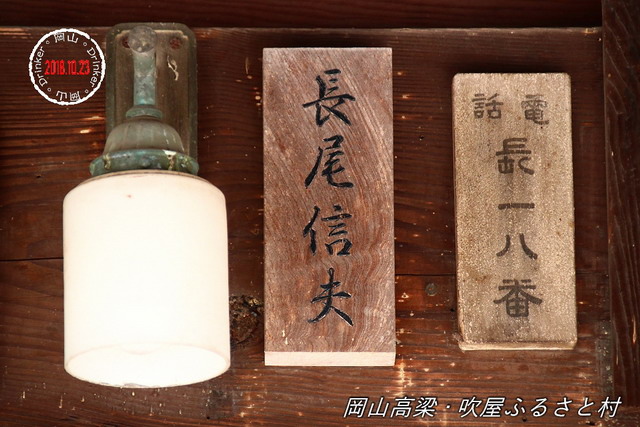 岡山。Drinker。岡山。Drinker。
2018.10.23
長尾信夫
電話
長一八番
岡山高梁・吹屋ふるさと村